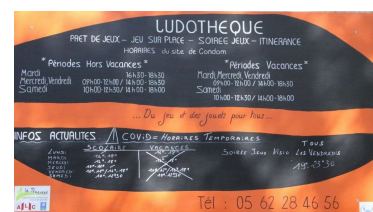 LUDOTHEQUE
PRET DE JEUX - JEU SUR PLACE - SOIREE JEUX - ITINERANCE
HORAIRES du site de Condom
*Périodes Hors Vacances*
Mardi 16h30-18h30
Mercredi, Vendredi 09h00-12h00 / 14h00-18h30
Samedi 10h00-12h30 / 14h00-18h00
*Périodes Vacances*
Mardi, Mercredi, Vendredi
09h00-12h00 / 14h00-18h30
Samedi 10h00-12h30 / 14h00-18h00
... Du jeu et des jouets pour tous...
INFOS ACTUALITES COVID = HORAIRES TEMPORAIRES
SCOLAIRE VACANCES TOUS
LUNDI
MARDI
MERCREDI
JEUDI
VENDREDI
SAMEDI
SOIREE JEUX VISIO LES VENDREDIS
Tél : 05 62 28 46 56